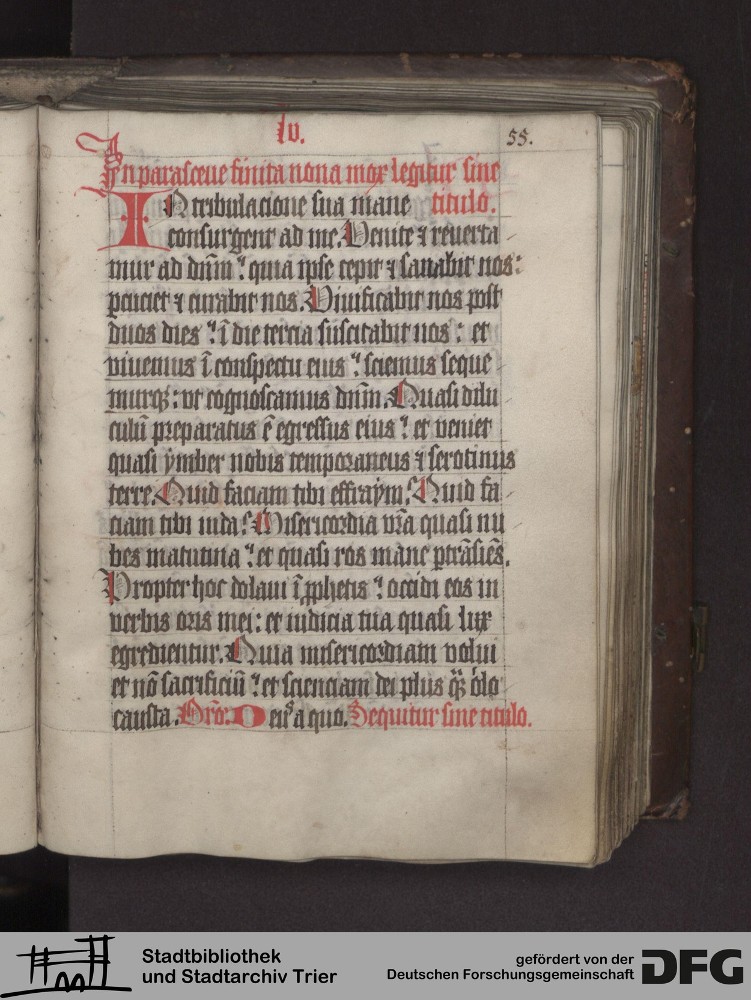 lv.
55.
In parasceue finita nona mox legitur sine
IN tribulacione sua mane titulo.
consurgent ad me. Venite ⁊ reuerta
mur ad dn̄m : quia ipse cepit ⁊ sanabit nos :
ꝑcuciet ⁊ curabit nos. Viuificabit nos post
duos dies : ī die tercia suscitabit nos : et
viuemus ī conspectu eius : sciemus seque
murqꝫ : vt cognoscamus dnīm. Quasi dilu
culū preparatus ē egressus eius : et veniet
quasi ymber nobis temporaneus ⁊ serotinus
terre. Quid faciam tibi effraym? Quid fa
ciam tibi iuda? Misericordia vr̄a quasi nu
bes matutina : et quasi ros mane ꝑtrāsiēs.
Propter hoc dolaui ī ꝓphetis : occidi eos in
verbis oris mei : et iudicia tua quasi lux
egredientur. Quia misericordiam volui
et nō sacrificiū : et scienciam dei plus qꝫ holo
causta. Orō. Deus a quo. Sequitur sine titulo.
Stadtbibliothek
und Stadtarchiv Trier
gefördert von der
Deutschen Forschungsgemeinschaft
DFG